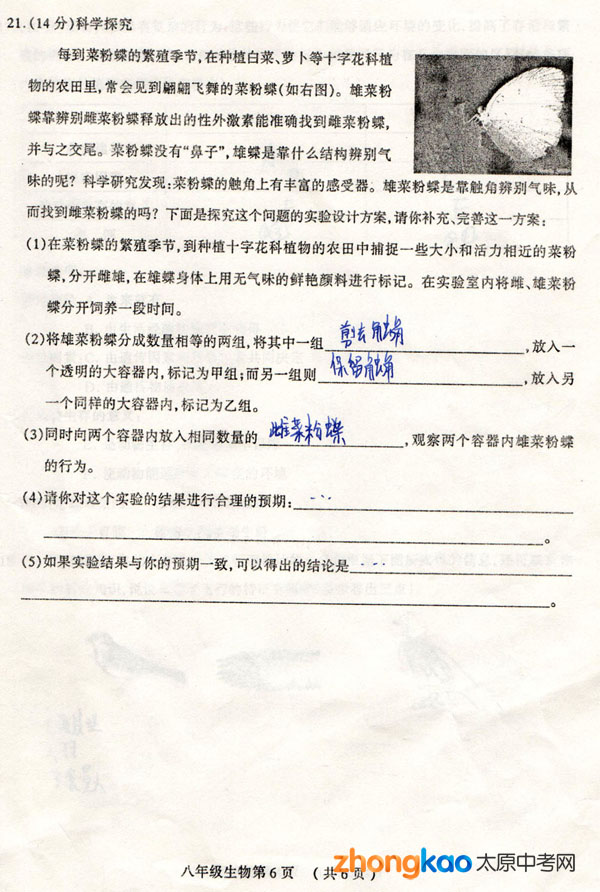 21.(14分)科学探究
每到菜粉蝶的繁殖季节,在种植白菜、萝卜等十字花科植
物的农田里,常会见到翩翩飞舞的菜粉蝶(如右图)。雄菜粉
蝶靠辨别雌菜粉蝶释放出的性外激素能准确找到雌菜粉蝶,
并与之交尾。菜粉蝶没有“鼻子”,雄蝶是靠什么结构辨别气
味的呢?科学研究发现:菜粉蝶的触角上有丰富的感受器。雄菜粉蝶是靠触角辨别气味,从
而找到雌菜粉蝶的吗?下面是探究这个问题的实验设计方案,请你补充、完善这一方案:
(1)在菜粉蝶的繁殖季节,到种植十字花科植物的农田中捕捉一些大小和活力相近的菜粉
蝶,分开雌雄,在雄蝶身体上用无气味的鲜艳颜料进行标记。在实验室内将雌、雄菜粉
蝶分开饲养一段时间。
(2)将雄菜粉蝶分成数量相等的两组,将其中一组 剪去触角 ,放入一
个透明的大容器内,标记为甲组;而另一组则 保留触角 ,放入另
一个同样的大容器内,标记为乙组。
(3)同时向两个容器内放入相同数量的 雌菜粉蝶 ,观察两个容器内雄菜粉蝶
的行为。
(4)请你对这个实验的结果进行合理的预期: ...
。
(5)如果实验结果与你的预期一致,可以得出的结论是 ....
。
八年级生物第6页 (共6页)
zhongkao 太原中考网